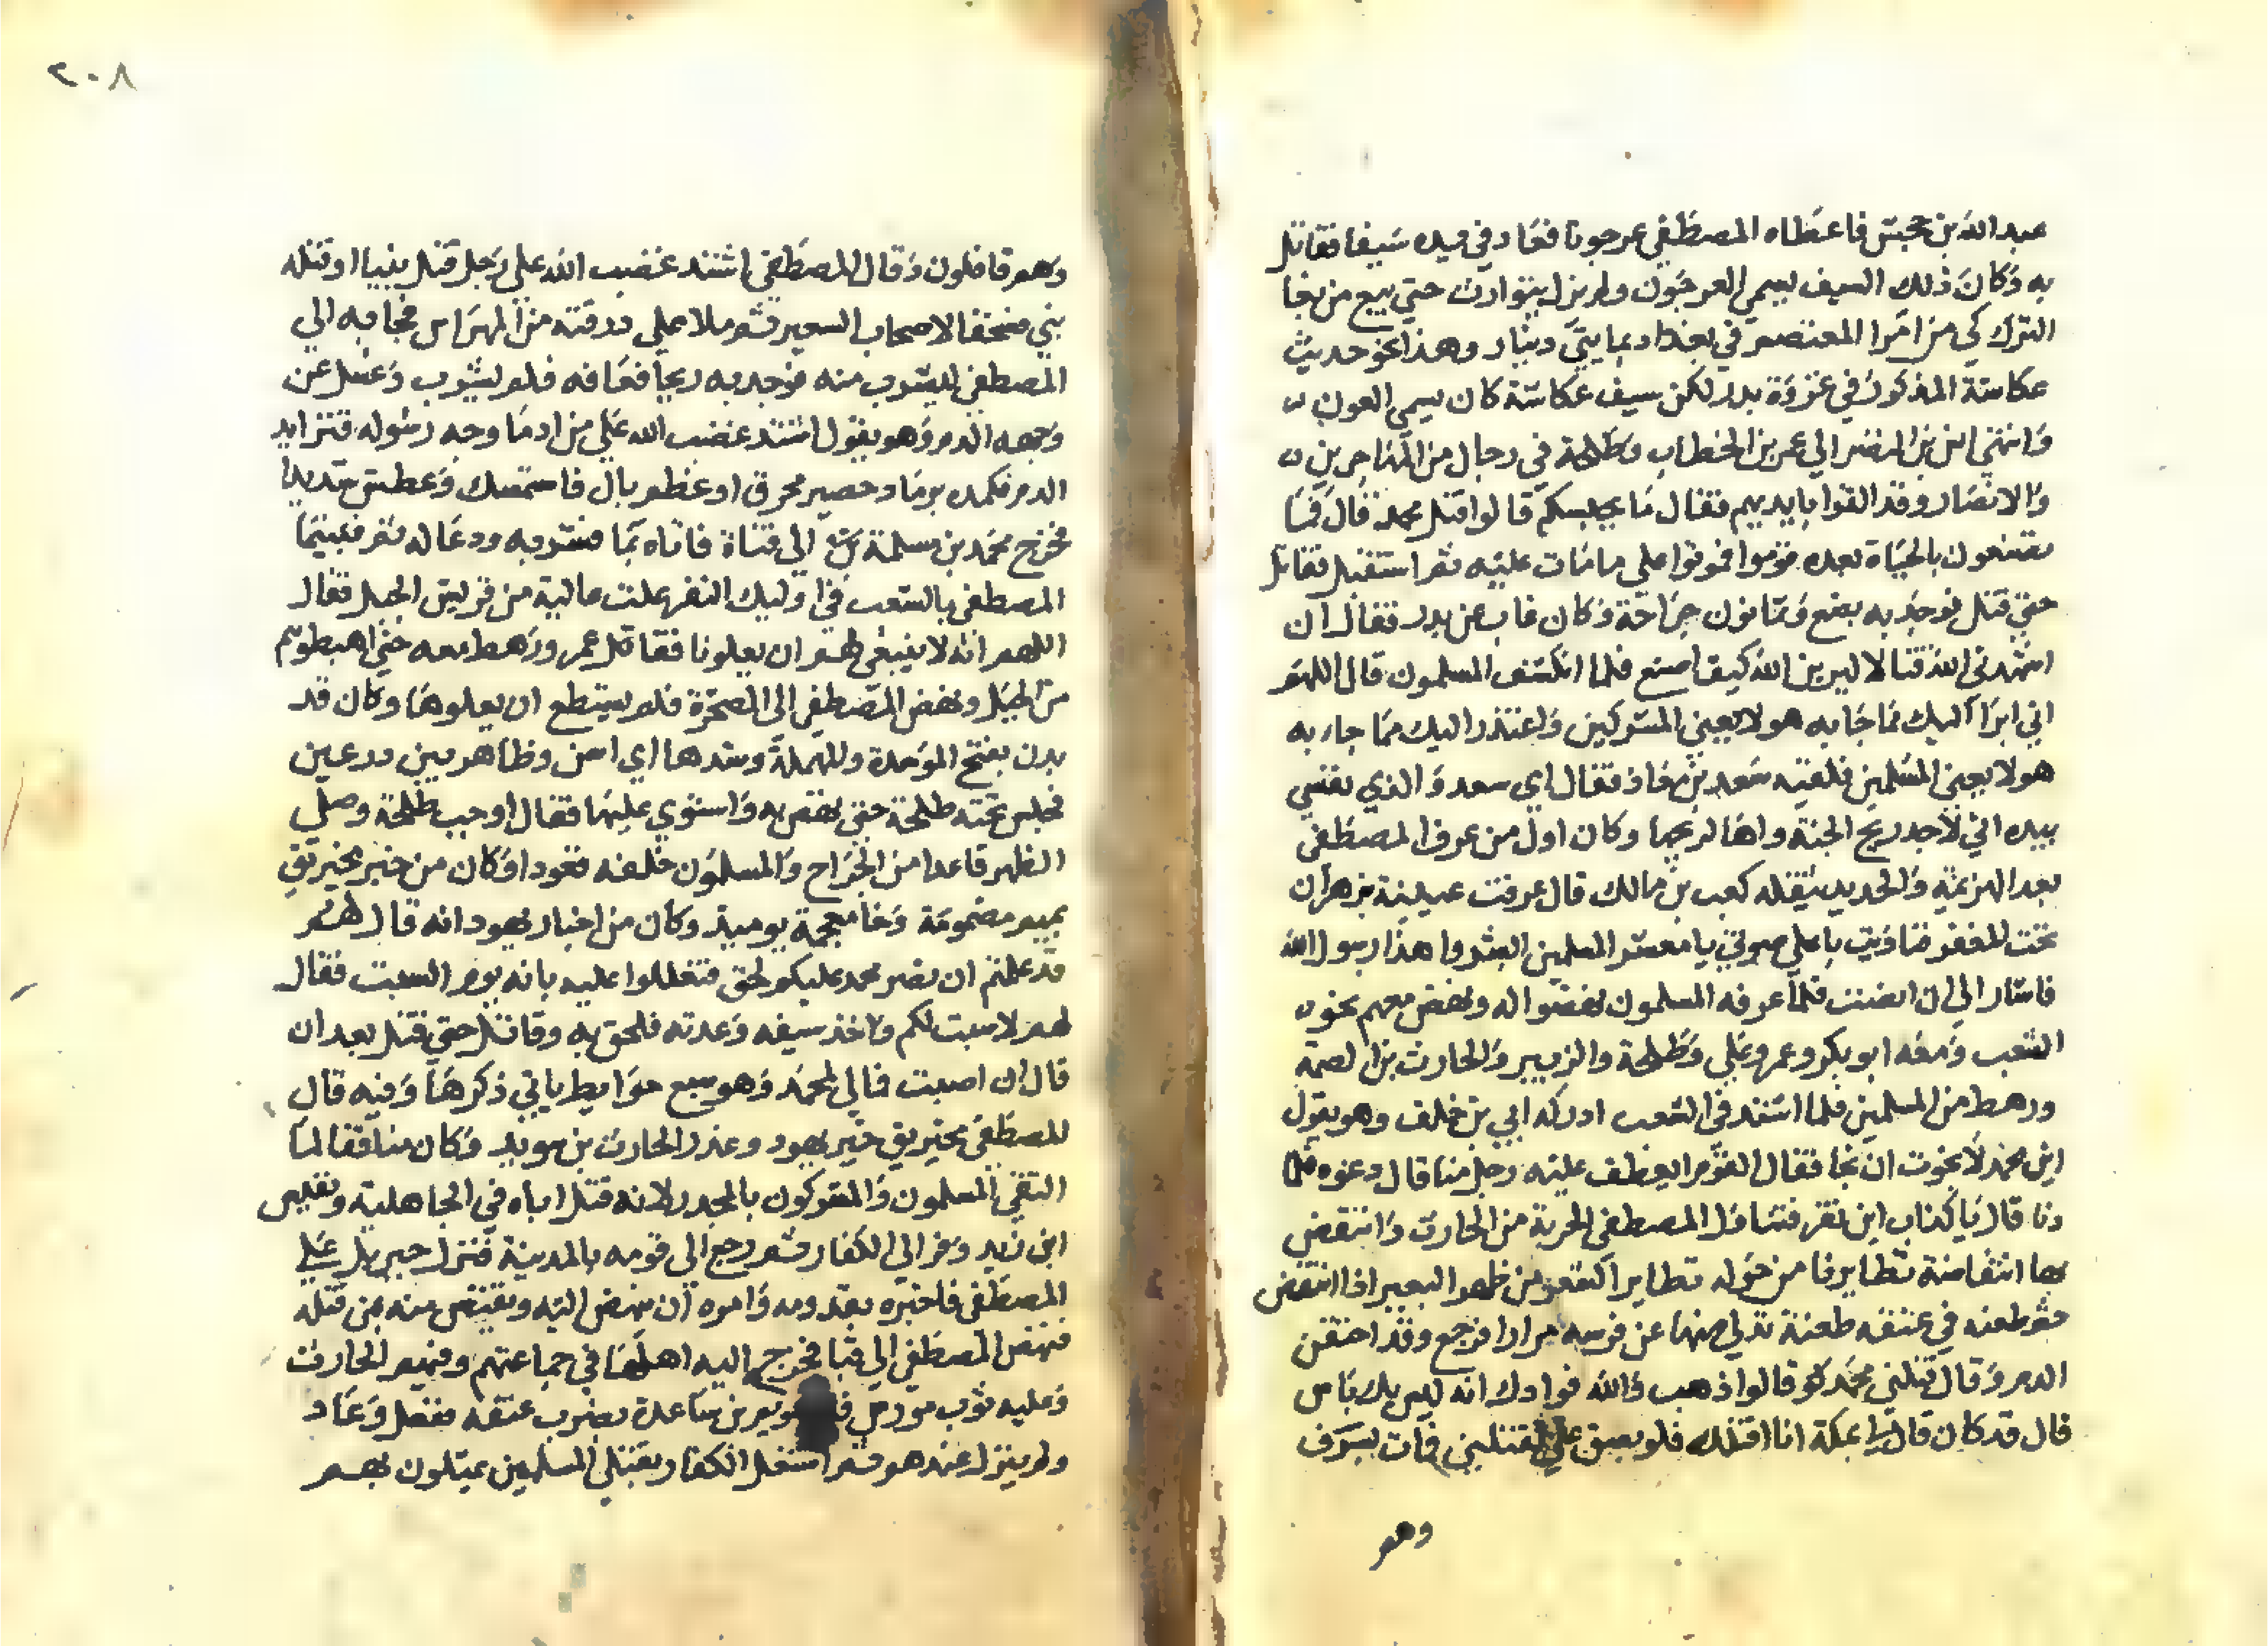 عبد الله بن جحش فاعطاه المصطفي عرجونا فعاد في يده سيفا فقاتل
به وكان ذلك السيف يسمي العرجون ولم يزل يتوارث حتي بيع من بغا
التركي من امرا المعتصم في بغداد بمايتي دينار وهذا نحو حديث
عكاشة المذكور في غزوة بدر لكن سيف عكاشة كان يسمي العون
وانتهي انس بن النضر الي عمر بن الخطاب وطلحة في رجال من المهاجرين
والانصار وقد القوا بايديهم فقال ما يجلسكم قالوا قتل محمد قال فما
تصنعون بالحياة بعده قوموا فموتوا علي ما مات عليه ثم استقبل فقاتل
حتي قتل فوجد به بضع وثمانون جراحة وكان غاب عن بدر فقال ان
اشهدني الله قتالا ليرين الله كيف اصنع فلما انكشف المسلمون قال اللهم
اني ابرا اليك مما جا به هولا يعني المشركين واعتذر اليك مما جاء به
هولا يعني المسلمين فلقيه سعد بن معاذ فقال اي سعد والذي نفسي
بيده اني لاجد ريح الجنة واها لريحها وكان اول من عرف المصطفي
بعد الهزيمة والحديث نقله كعب بن مالك قال عرفت عينيه تزهران
تحت المغفر فناديت باعلي صوتي يا معشر المسلمين ابشروا هذا رسول الله
فاشار الي ان انصت فلما عرفه المسلمون نهضوا له ونهض معهم نحو
الشعب ومعه ابو بكر وعمر وعلي وطلحة والزبير والحارث بن الصمة
ورهط من المسلمين فلما اسند في الشعب ادركه ابي بن خلف وهو يقول
اين محمد لا نجوت ان نجا فقال القوم ايعطف عليه رجل منا قال دعوه فلما
دنا قال يا كذاب اين تفر فتناول المصطفي الحربة من الحارث وانتفض
بها انتفاضة تطايرنا من حوله تطاير الشعر من ظهر البعير اذا انتفض
ثم طعنه في عنقه طعنة تدلي منها عن فرسه مرارا فرجع وقد احتقن
الدم وقال قتلني محمدكم قالوا ذهب والله فوادك انه ليس بك باس
قال قد كان قال لي بمكة انا اقتلك فلو بصق علي لقتلني فمات بسرف
وهو
٢٠٨
وهم قافلون وقال المصطفي اشتد غضب الله علي رجل قتل نبيا او قتله
نبي فسحقا لاصحاب السعير ثم ملا علي درقته من المهراس فجا به الي
المصطفي ليشرب منه فوجد به ريحا فعافه فلم يشرب وغسل عن
وجهه الدم وهو يقول اشتد غضب الله علي من ادما وجه رسوله فتزايد
الدم فكمده برماد حصير محرق او عظم بال فاستمسك وعطش شديدا
فخرج محمد بن مسلمة الي قناة فاتاه بما فشربه ودعا له ثم فبينما
المصطفي بالشعب في اوليك النفر علت عالية من قريش الجبل فقال
اللهم انه لا ينبغي لهم ان يعلونا فقاتل عمر ورهط معه حتي اهبطوهم
من الجبل ونهض المصطفي الي الصخرة فلم يستطع ان يعلوها وكان قد
بدن بفتح الموحدة والمهملة وشدها اي اسن وظاهر بين درعين
فجلس تحته طلحة حتي نهض به واستوي عليها فقال اوجب طلحة وصلي
الظهر قاعدا من الجراح والمسلمون خلفه قعودا وكان من خبر مخيريق
بميم مضمومة وخا معجمة يوميد وكان من احبار يهود انه قال لهم
قد علمتم ان نصر محمد عليكم لحق فتعللوا عليه بانه يوم السبت فقال
لهم لا سبت لكم واخذ سيفه وعدته فلحق به وقاتل حتي قتل بعد ان
قال ان اصبت فمالي لمحمد وهو سبع حوايط ياتي ذكرها وفيه قال
المصطفي مخيريق خير يهود وعذر الحارث بن سويد وكان منافقا لما
التقي المسلمون والمشركون بالمجدر لانه قتل اباه في الجاهلية وبقيس
ابن زيد وفر الي الكفار ثم رجع الي قومه بالمدينة فنزل جبريل علي
المصطفي فاخبره بقدومه وامره ان ينهض اليه ويقتص منه بمن قتله
فنهض المصطفي الي قبا فخرج اليه اهلها في جماعتهم وفيهم الحارث
وعليه ثوب مورس عويم بن ساعدة بضرب عنقه ففعل وعاد
ولم ينزل عندهم ثم اشتغل الكفار بقتلي المسلمين يمثلون بهم